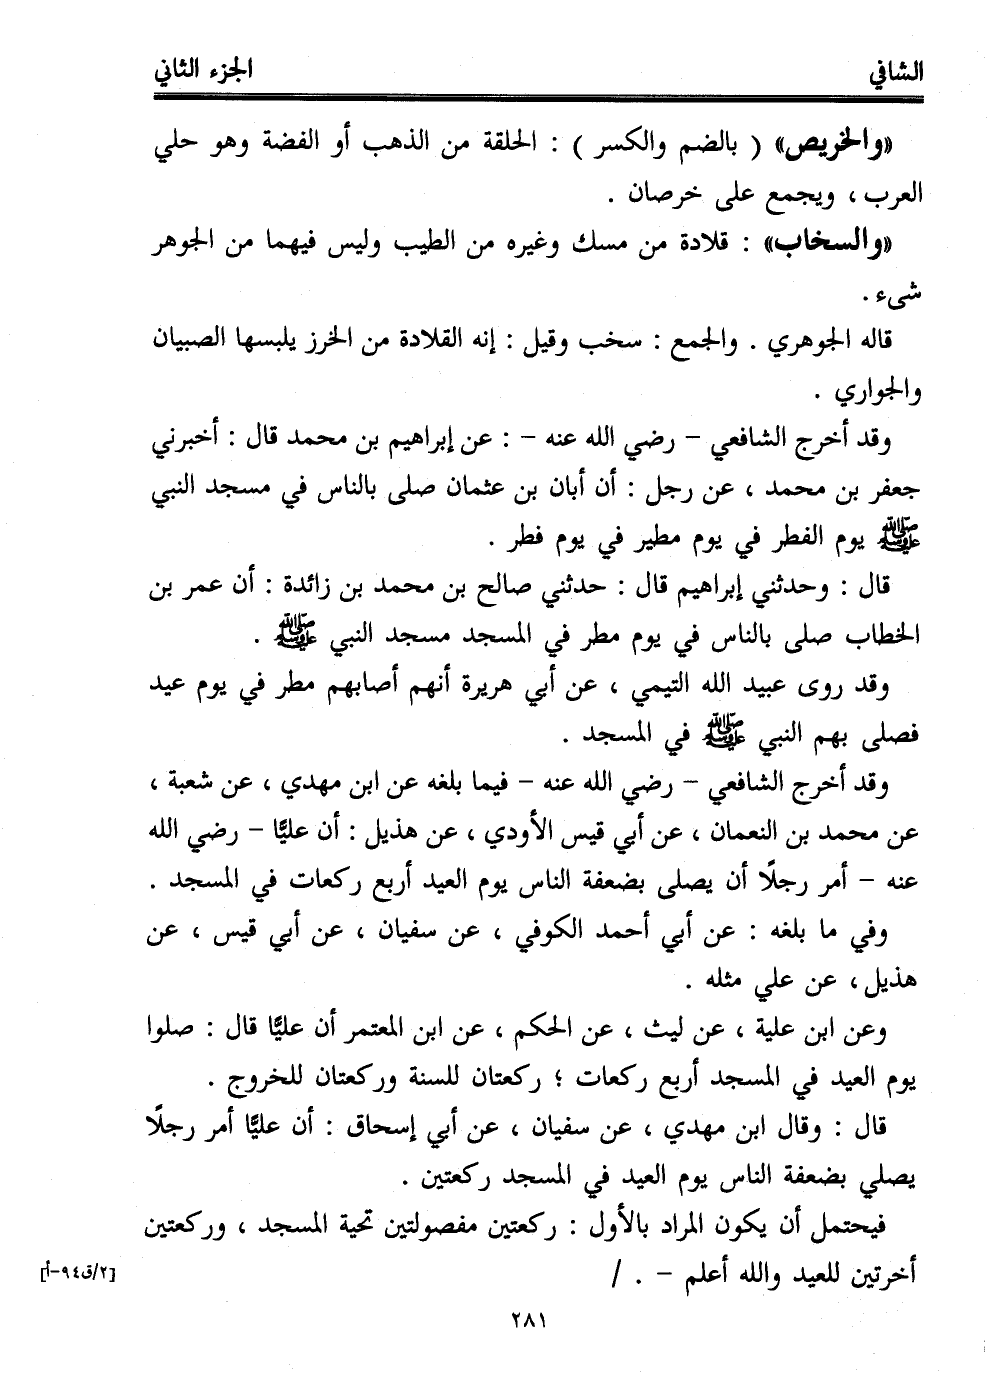 الشافي الجزء الثاني
«والخريص» ( بالضم والكسر ) : الحلقة من الذهب أو الفضة وهو حلي
العرب ، ويجمع على خرصان .
«والسخاب» : قلادة من مسك وغيره من الطيب وليس فيهما من الجوهر
شىء .
قاله الجوهري . والجمع : سخب وقيل : إنه القلادة من الخرز يلبسها الصبيان
والجواري .
وقد أخرج الشافعي – رضي الله عنه – : عن إبراهيم بن محمد قال : أخبرني
جعفر بن محمد ، عن رجل : أن أبان بن عثمان صلى بالناس في مسجد النبي
ﷺ يوم الفطر في يوم مطير في يوم فطر .
قال : وحدثني إبراهيم قال : حدثني صالح بن محمد بن زائدة : أن عمر بن
الخطاب صلى بالناس في يوم مطر في المسجد مسجد النبي ﷺ .
وقد روى عبيد الله التيمي ، عن أبي هريرة أنهم أصابهم مطر في يوم عيد
فصلى بهم النبي ﷺ في المسجد .
وقد أخرج الشافعي – رضي الله عنه – فيما بلغه عن ابن مهدي ، عن شعبة ،
عن محمد بن النعمان ، عن أبي قيس الأودي ، عن هذيل : أن عليًّا – رضي الله
عنه – أمر رجلًا أن يصلى بضعفة الناس يوم العيد أربع ركعات في المسجد .
وفي ما بلغه : عن أبي أحمد الكوفي ، عن سفيان ، عن أبي قيس ، عن
هذيل ، عن علي مثله .
وعن ابن علية ، عن ليث ، عن الحكم ، عن ابن المعتمر أن عليًّا قال : صلوا
يوم العيد في المسجد أربع ركعات ؛ ركعتان للسنة وركعتان للخروج .
قال : وقال ابن مهدي ، عن سفيان ، عن أبي إسحاق : أن عليًّا أمر رجلًا
يصلي بضعفة الناس يوم العيد في المسجد ركعتين .
فيحتمل أن يكون المراد بالأول : ركعتين مفصولتين تحية المسجد ، وركعتين
أخرتين للعيد والله أعلم – . / [٢/ق٩٤-أ]
٢٨١